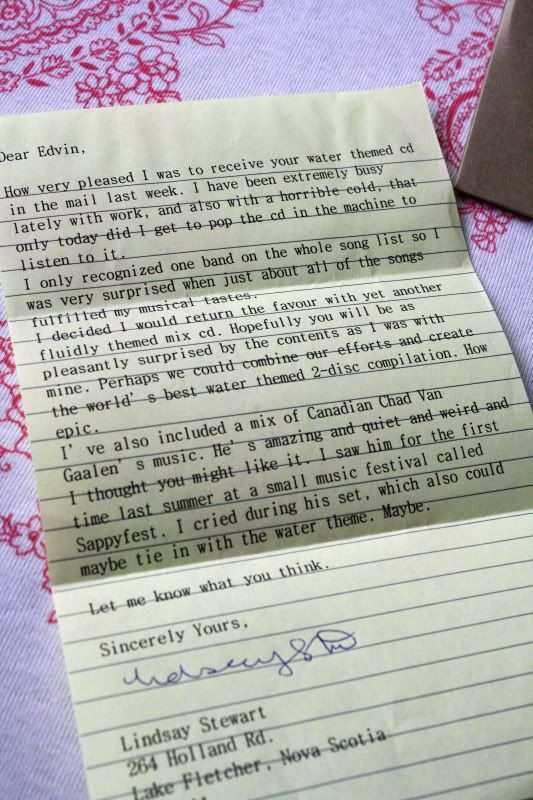 Dear Edvin,
How very pleased I was to receive your water themed cd
in the mail last week. I have been extremely busy
lately with work, and also with a horrible cold, that
only today did I get to pop the cd in the machine to
listen to it.
I only recognized one band on the whole song list so I
was very surprised when just about all of the songs
fulfilled my musical tastes.
I decided I would return the favour with yet another
fluidly themed mix cd. Hopefully you will be as
pleasantly surprised by the contents as I was with
mine. Perhaps we could combine our efforts and create
the world's best water themed 2-disc compilation. How
epic.
I've also included a mix of Canadian Chad Van
Gaalen's music. He's amazing and quiet and weird and
I thought you might like it. I saw him for the first
time last summer at a small music festival called
Sappyfest. I cried during his set, which also could
maybe tie in with the water theme. Maybe.
Let me know what you think.
Sincerely Yours,
Lindsay Stewart
264 Holland Rd.
Lake Fletcher, Nova Scotia